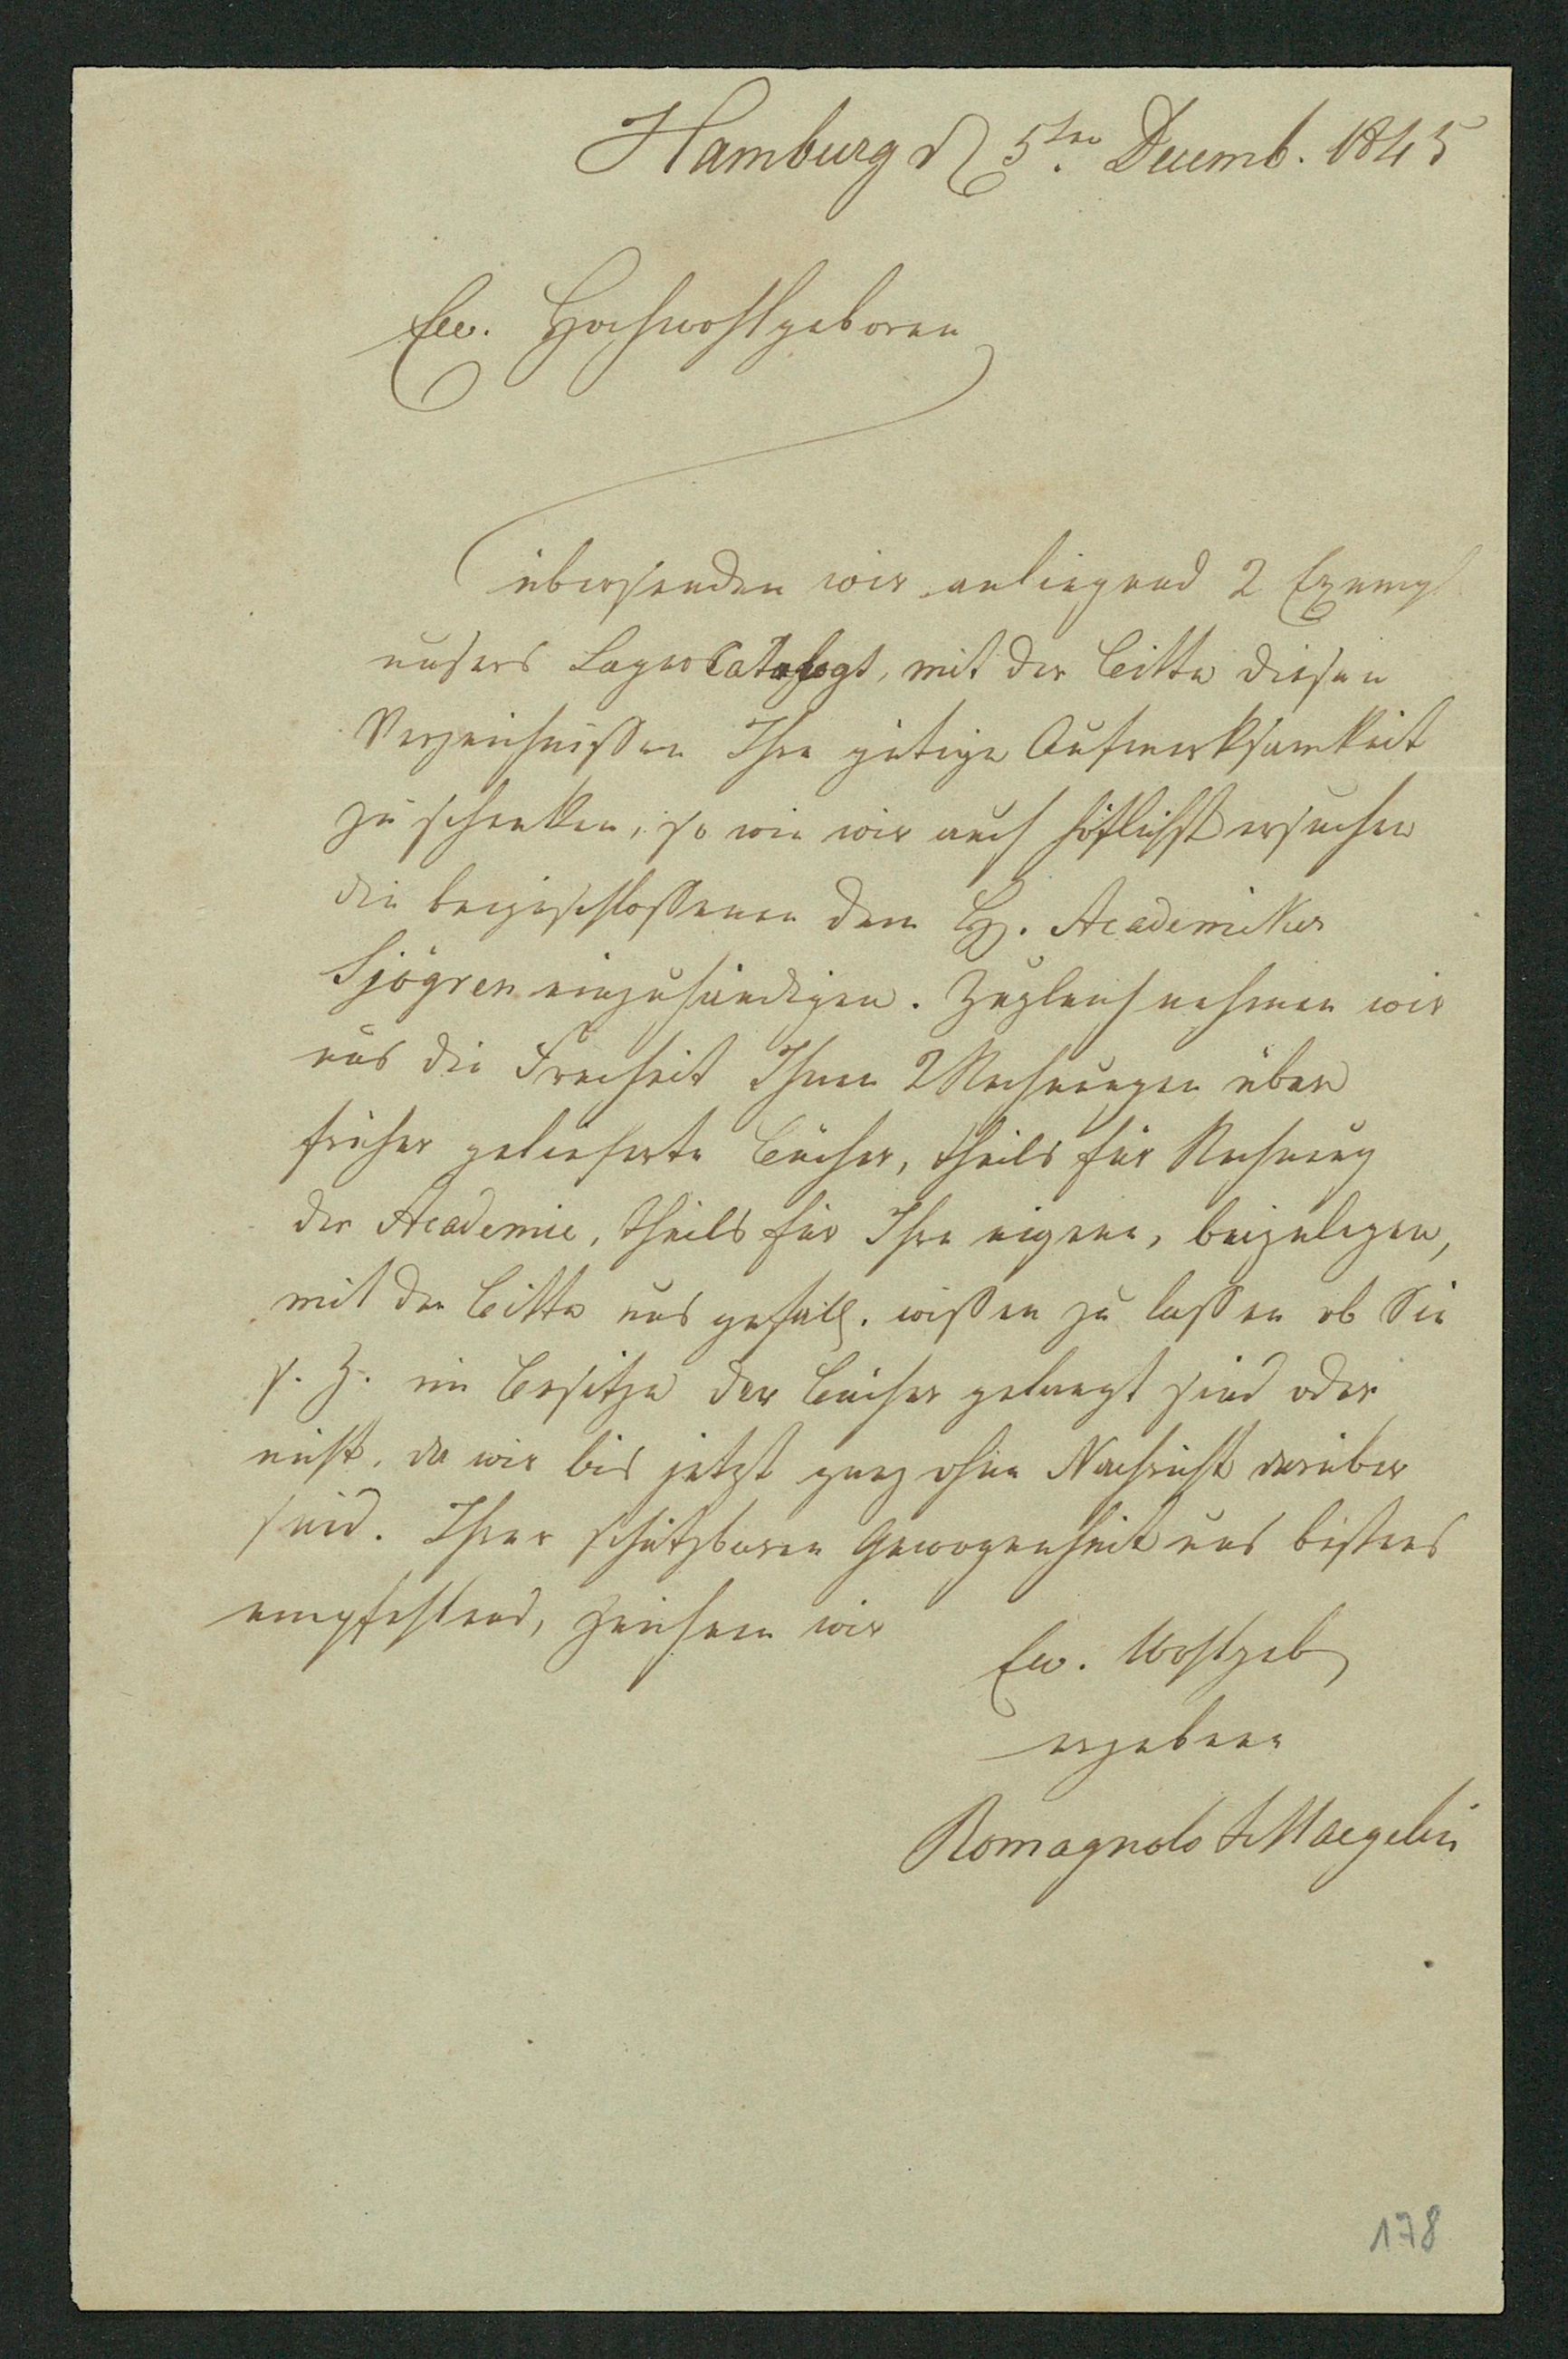 Hamburg d 5ten Decemb. 1845
Ew. Hochwohlgeboren
übersenden wir anliegend 2 Exempl
unsers Lagercatalogs, mit der Bitte diesen
Verzeichnissen Ihre gütige Aufmerksamkeit
zu schenken, so wie wir auch höflichst ersuchen
die beigeschlossenen dem H. Academiker
Sjögren einzuhändigen. Zugleich nehmen wir
uns die Freiheit Ihnen 2 Rechnungen über
früher gelieferte Bücher, theils für Rechnung
der Academie, theils für Ihre eigene, beizulegen,
mit der Bitte uns gefäll. wissen zu lassen ob Sie
s. Z. im Besitze der Bücher gelangt sind oder
nicht, da wir bis jetzt ganz ohne Nachricht darüber
sind. Ihrer schätzbaren Gewogenheit uns bestens
empfehlend, zeichnen wir
Ew. Wohlgeb
ergebene
Romagnolo &
178